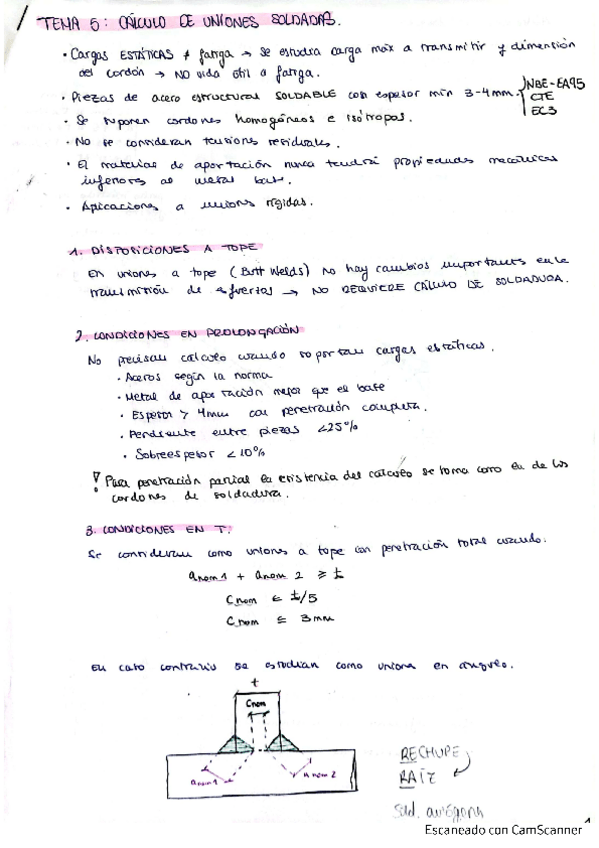 TEMA 5: CÁLCULO DE UNIONES SOLDADAS.
· Cargas ESTÁTICAS ≠ fatiga → se estudia carga max a transmitir y dimensión
del cordón → NO vida útil a fatiga.
· Piezas de acero estructural SOLDABLE con espesor min 3-4mm.
NBE-EA95
CTE
EC3
· Se suponen cordones homogéneos e isótropos.
· No se consideran tensiones residuales.
· El material de aportación nunca tendrá propiedades mecánicas
inferiores al metal base.
· Aplicaciones a uniones rígidas.
1. DISPOSICIONES A TOPE
En uniones a tope (Butt Welds) no hay cambios importantes en la
transmisión de esfuerzos → NO REQUIERE CÁLCULO DE SOLDADURA.
2. CONDICIONES EN PROLONGACIÓN
No precisan cálculo cuando soportan cargas estáticas.
· Aceros según la norma
· Metal de aportación mejor que el base
· Espesor > 4mm con penetración completa.
· Pendiente entre piezas <25%
· Sobreespesor <10%
! Para penetración parcial la existencia del cálculo se toma como la de los
cordones de soldadura.
3. CONDICIONES EN T.
Se consideran como uniones a tope con penetración total cuando:
anom1 + anom 2 ≥ t
Cnom ≤ t/5
Cnom ≤ 3mm
En caso contrario se estudian como uniones en ángulo.
t
Cnom
anom1
anom2
RECHUPE
RAÍZ
Sold. autógena
1
Escaneado con CamScanner